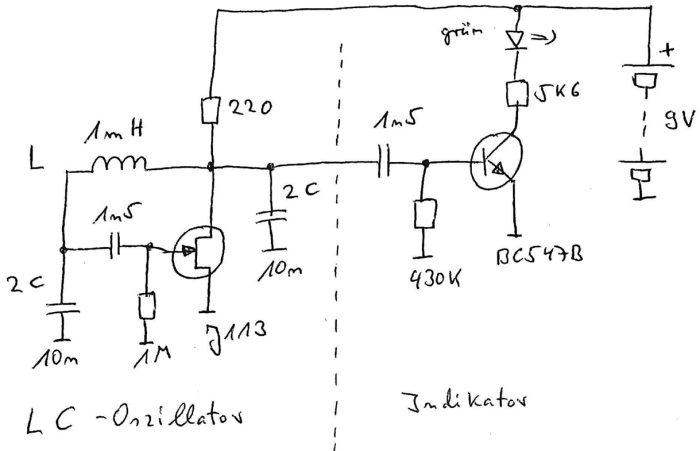 grün
5K6
+
9V
220
1mH
L
1n5
1n5
2C
10n
2C
10n
1M
J113
430K
BC547B
LC-Oszillator
Indikator